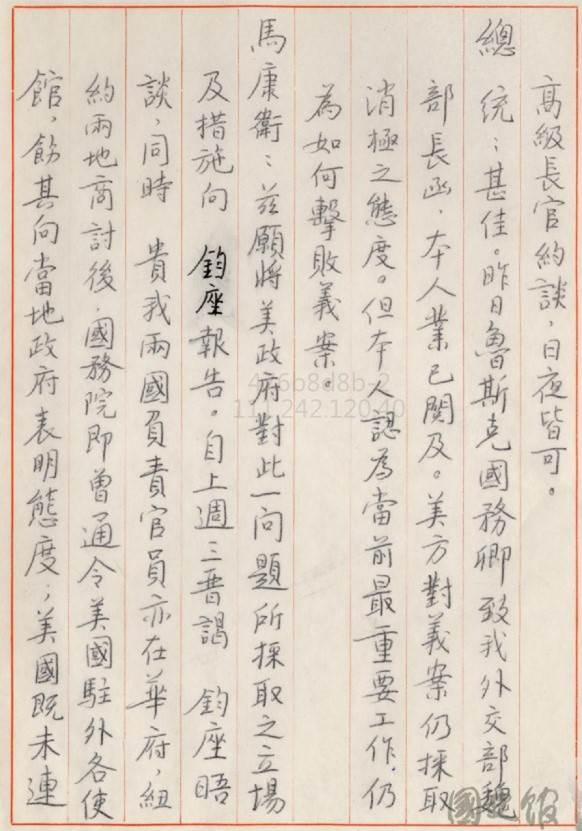 高級長官約談,日夜皆可。
總統:甚佳。昨日魯斯克國務卿致我外交部魏
部長函,本人業已閱及。美方對義案仍採取
消極之態度。但本人認為當前最重要工作,仍
為如何擊敗義案。
馬康衛:茲願將美政府對此一問題所採取之立場
及措施向 鈞座報告。自上週三晋謁 鈞座晤
談,同時 貴我兩國負責官員亦在華府,紐
約兩地商討後,國務院即曾通令美國駐外各使
館,飭其向當地政府表明態度;美國既未連
國史館